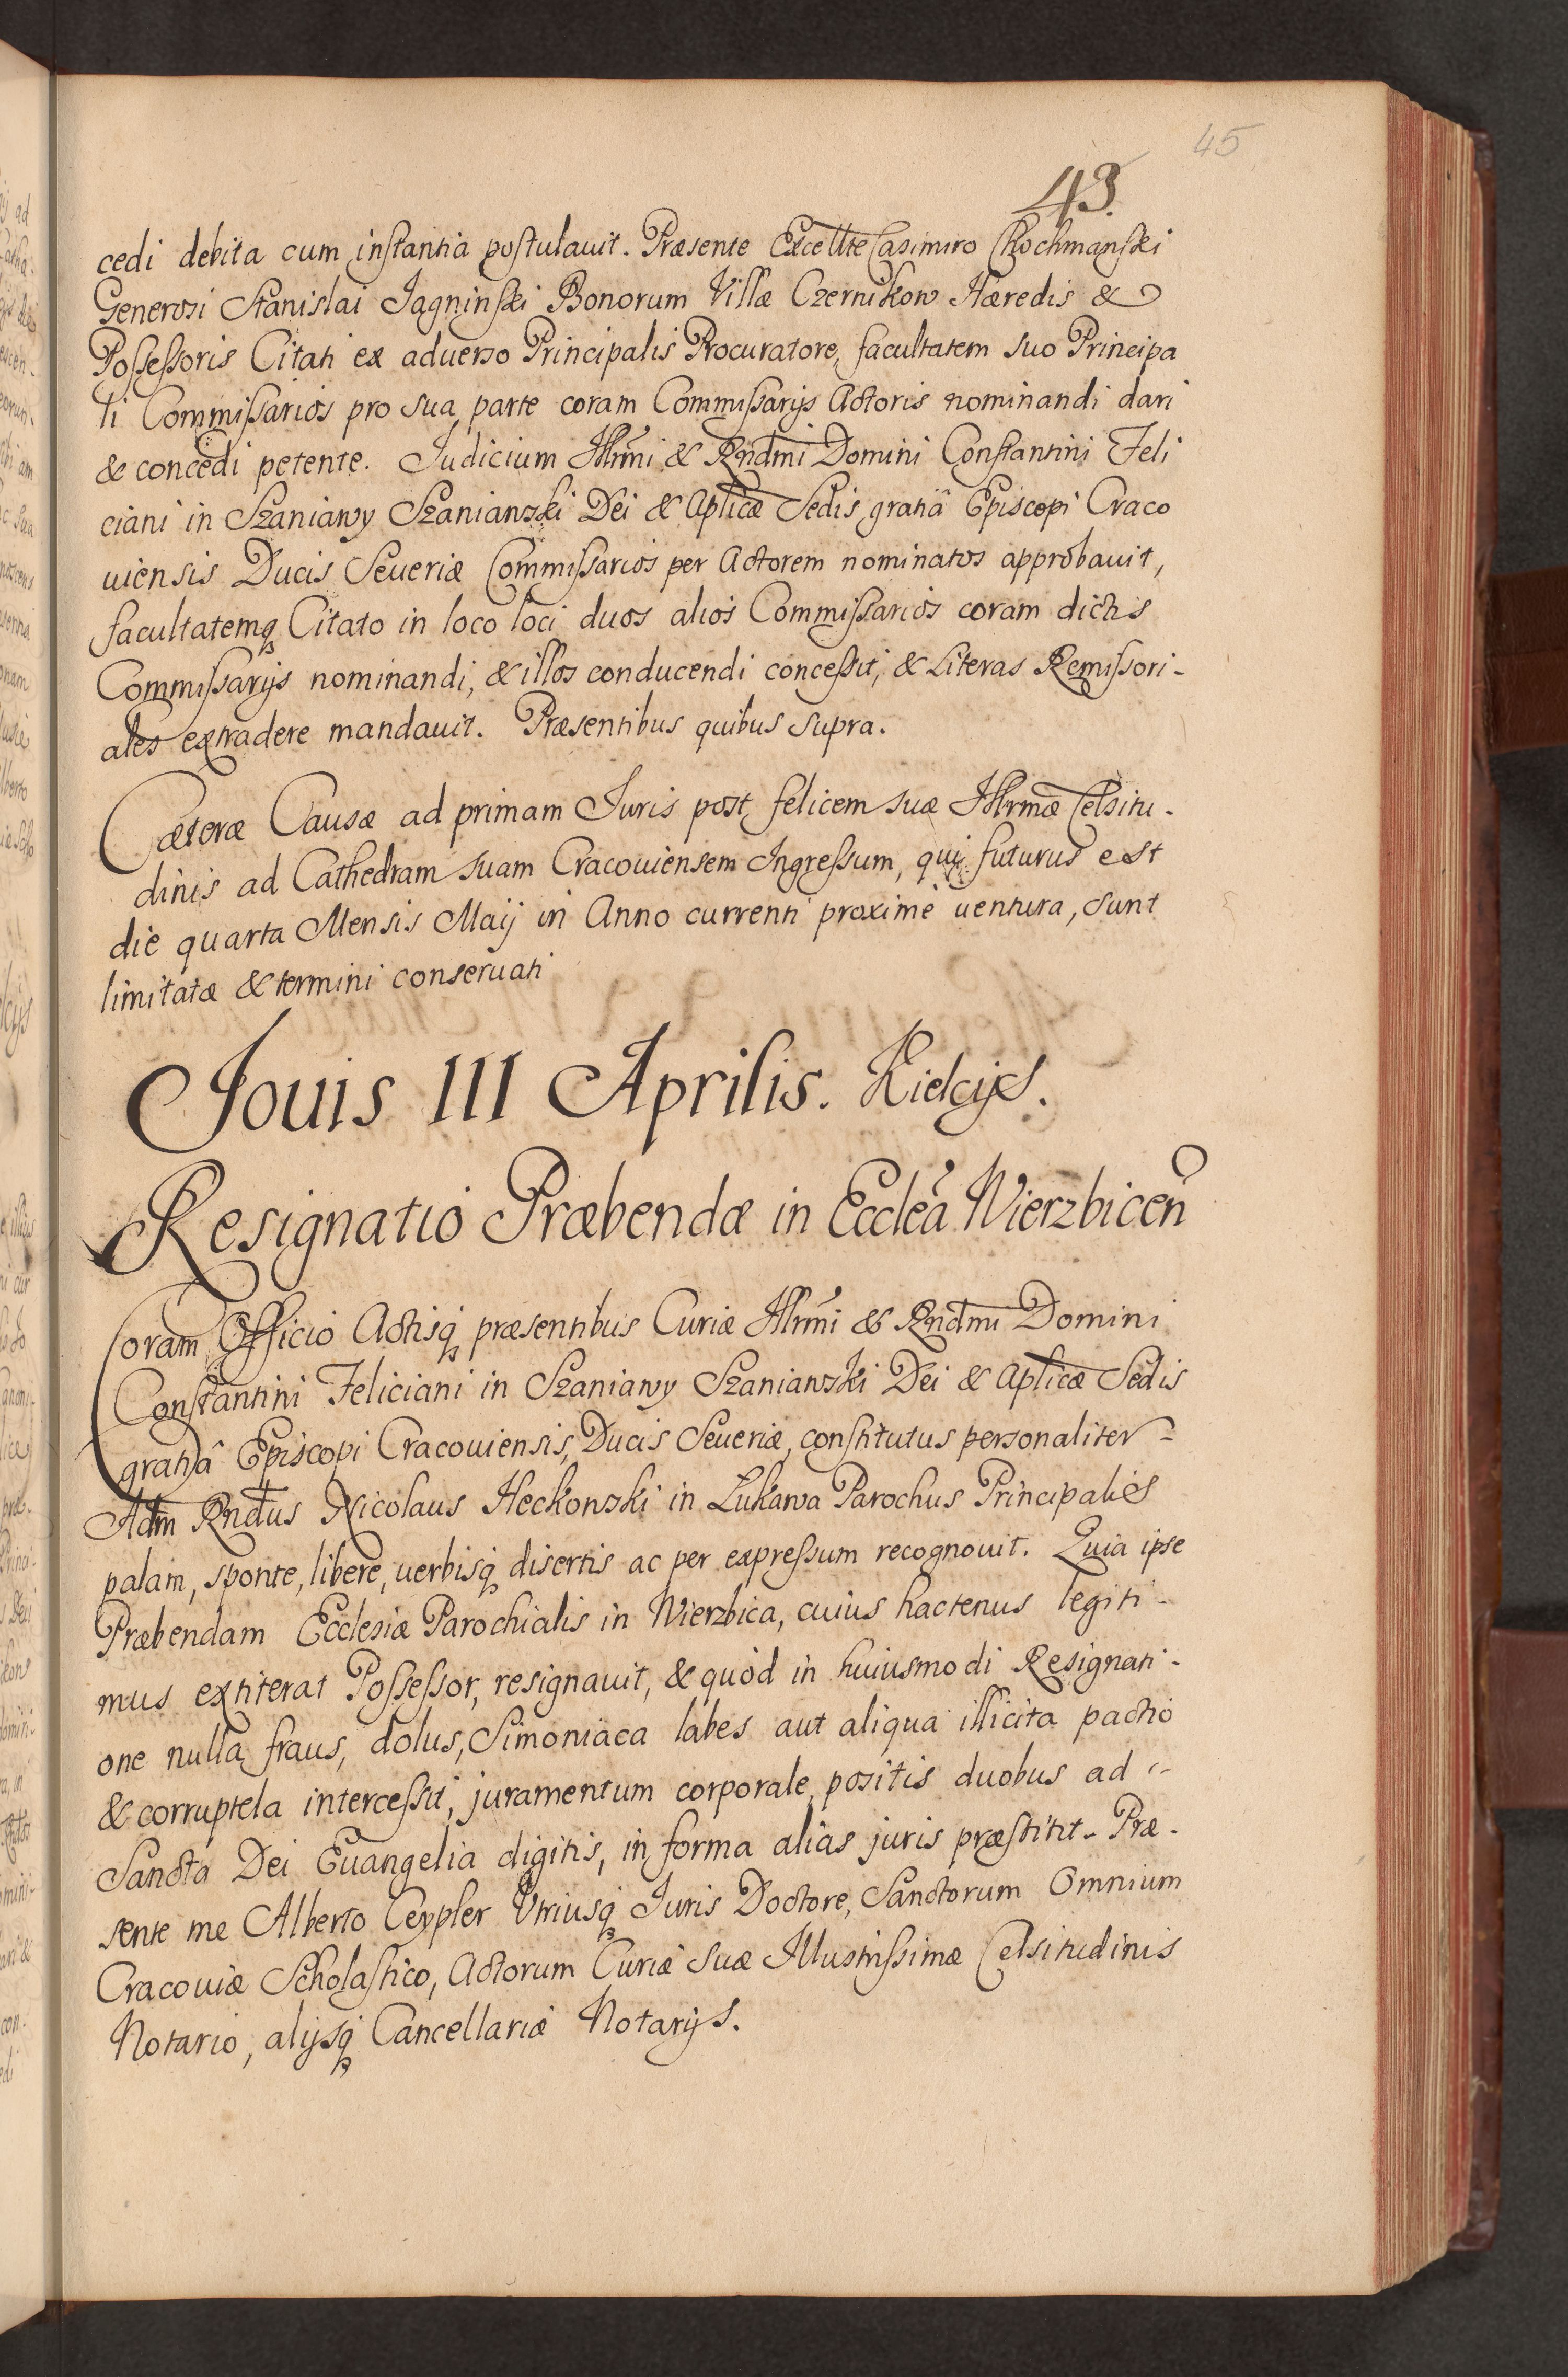 45
43.
cedi debita cum instantia postulauit. Præsente Excellte Casimiro Chochmanski
Generosi Stanislai Jagninski Bonorum Villæ Czernikow Hæredis &
Possessoris Citati ex aduerso Principalis Procuratore, facultatem suo Principa
li Commissarios pro sua parte coram Commissarijs Actoris nominandi dari
& concedi petente. Judicium Illrmi & Rndmi Domini Constantini Feli
ciani in Szaniawy Szaniawski Dei & Aplicæ Sedis gratiâ Episcopi Craco
uiensis Ducis Seueriæ Commissarios per Actorem nominatos approbauit,
facultatemq Citato in loco loci duos alios Commissarios coram dictis
Commissarijs nominandi, & illos conducendi concessit, & Literas Remissori-
ales extradere mandauit. Præsentibus quibus supra.
Cæteræ Causæ ad primam Juris post felicem suæ Illrmæ Celsitu-
dinis ad Cathedram suam Cracouiensem Ingressum, qui futurus est
die quarta Mensis Maij in Anno currenti proximè uentura, sunt
limitatæ & termini conseruati
Jouis III Aprilis. Kielcijs.
Resignatio Præbendæ in Ecclea Wierzbicen
Coram Officio Actisq præsentibus Curiæ Illrmi & Rndmi Domini
Constantini Feliciani in Szaniawy Szaniawski Dei & Aplicæ Sedis
gratiâ Episcopi Cracouiensis, Ducis Seueriæ, constitutus personaliter
Adm Rndus Nicolaus Heckowski in Lukawa Parochus Principalis
palam, sponte, libere, uerbisq disertis ac per expressum recognouit. Quia ipse
Præbendam Ecclesiæ Parochialis in Wierzbica, cuius hactenus legiti-
mus extiterat Possessor, resignauit, & quòd in huiusmodi Resignati-
one nulla fraus, dolus, Simoniaca labes aut aliqua illicita pactio
& corruptela intercessit, juramentum corporale, positis duobus ad
Sancta Dei Euangelia digitis, in forma alias juris præstitit. Præ-
sente me Alberto Ceypler Vtriusq Juris Doctore, Sanctorum Omnium
Cracouiæ Scholastico, Actorum Curiæ suæ Illustrissimæ Celsitudinis
Notario, alijsq Cancellariæ Notarijs.